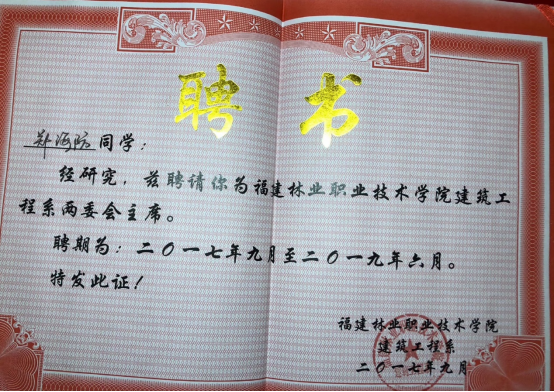 聘书
郑海防同学：
经研究，兹聘请你为福建林业职业技术学院建筑工
程系两委会主席。
聘期为：二〇一七年九月至二〇一九年六月。
特发此证！
福建林业职业技术学院
建筑工程系
二〇一七年九月